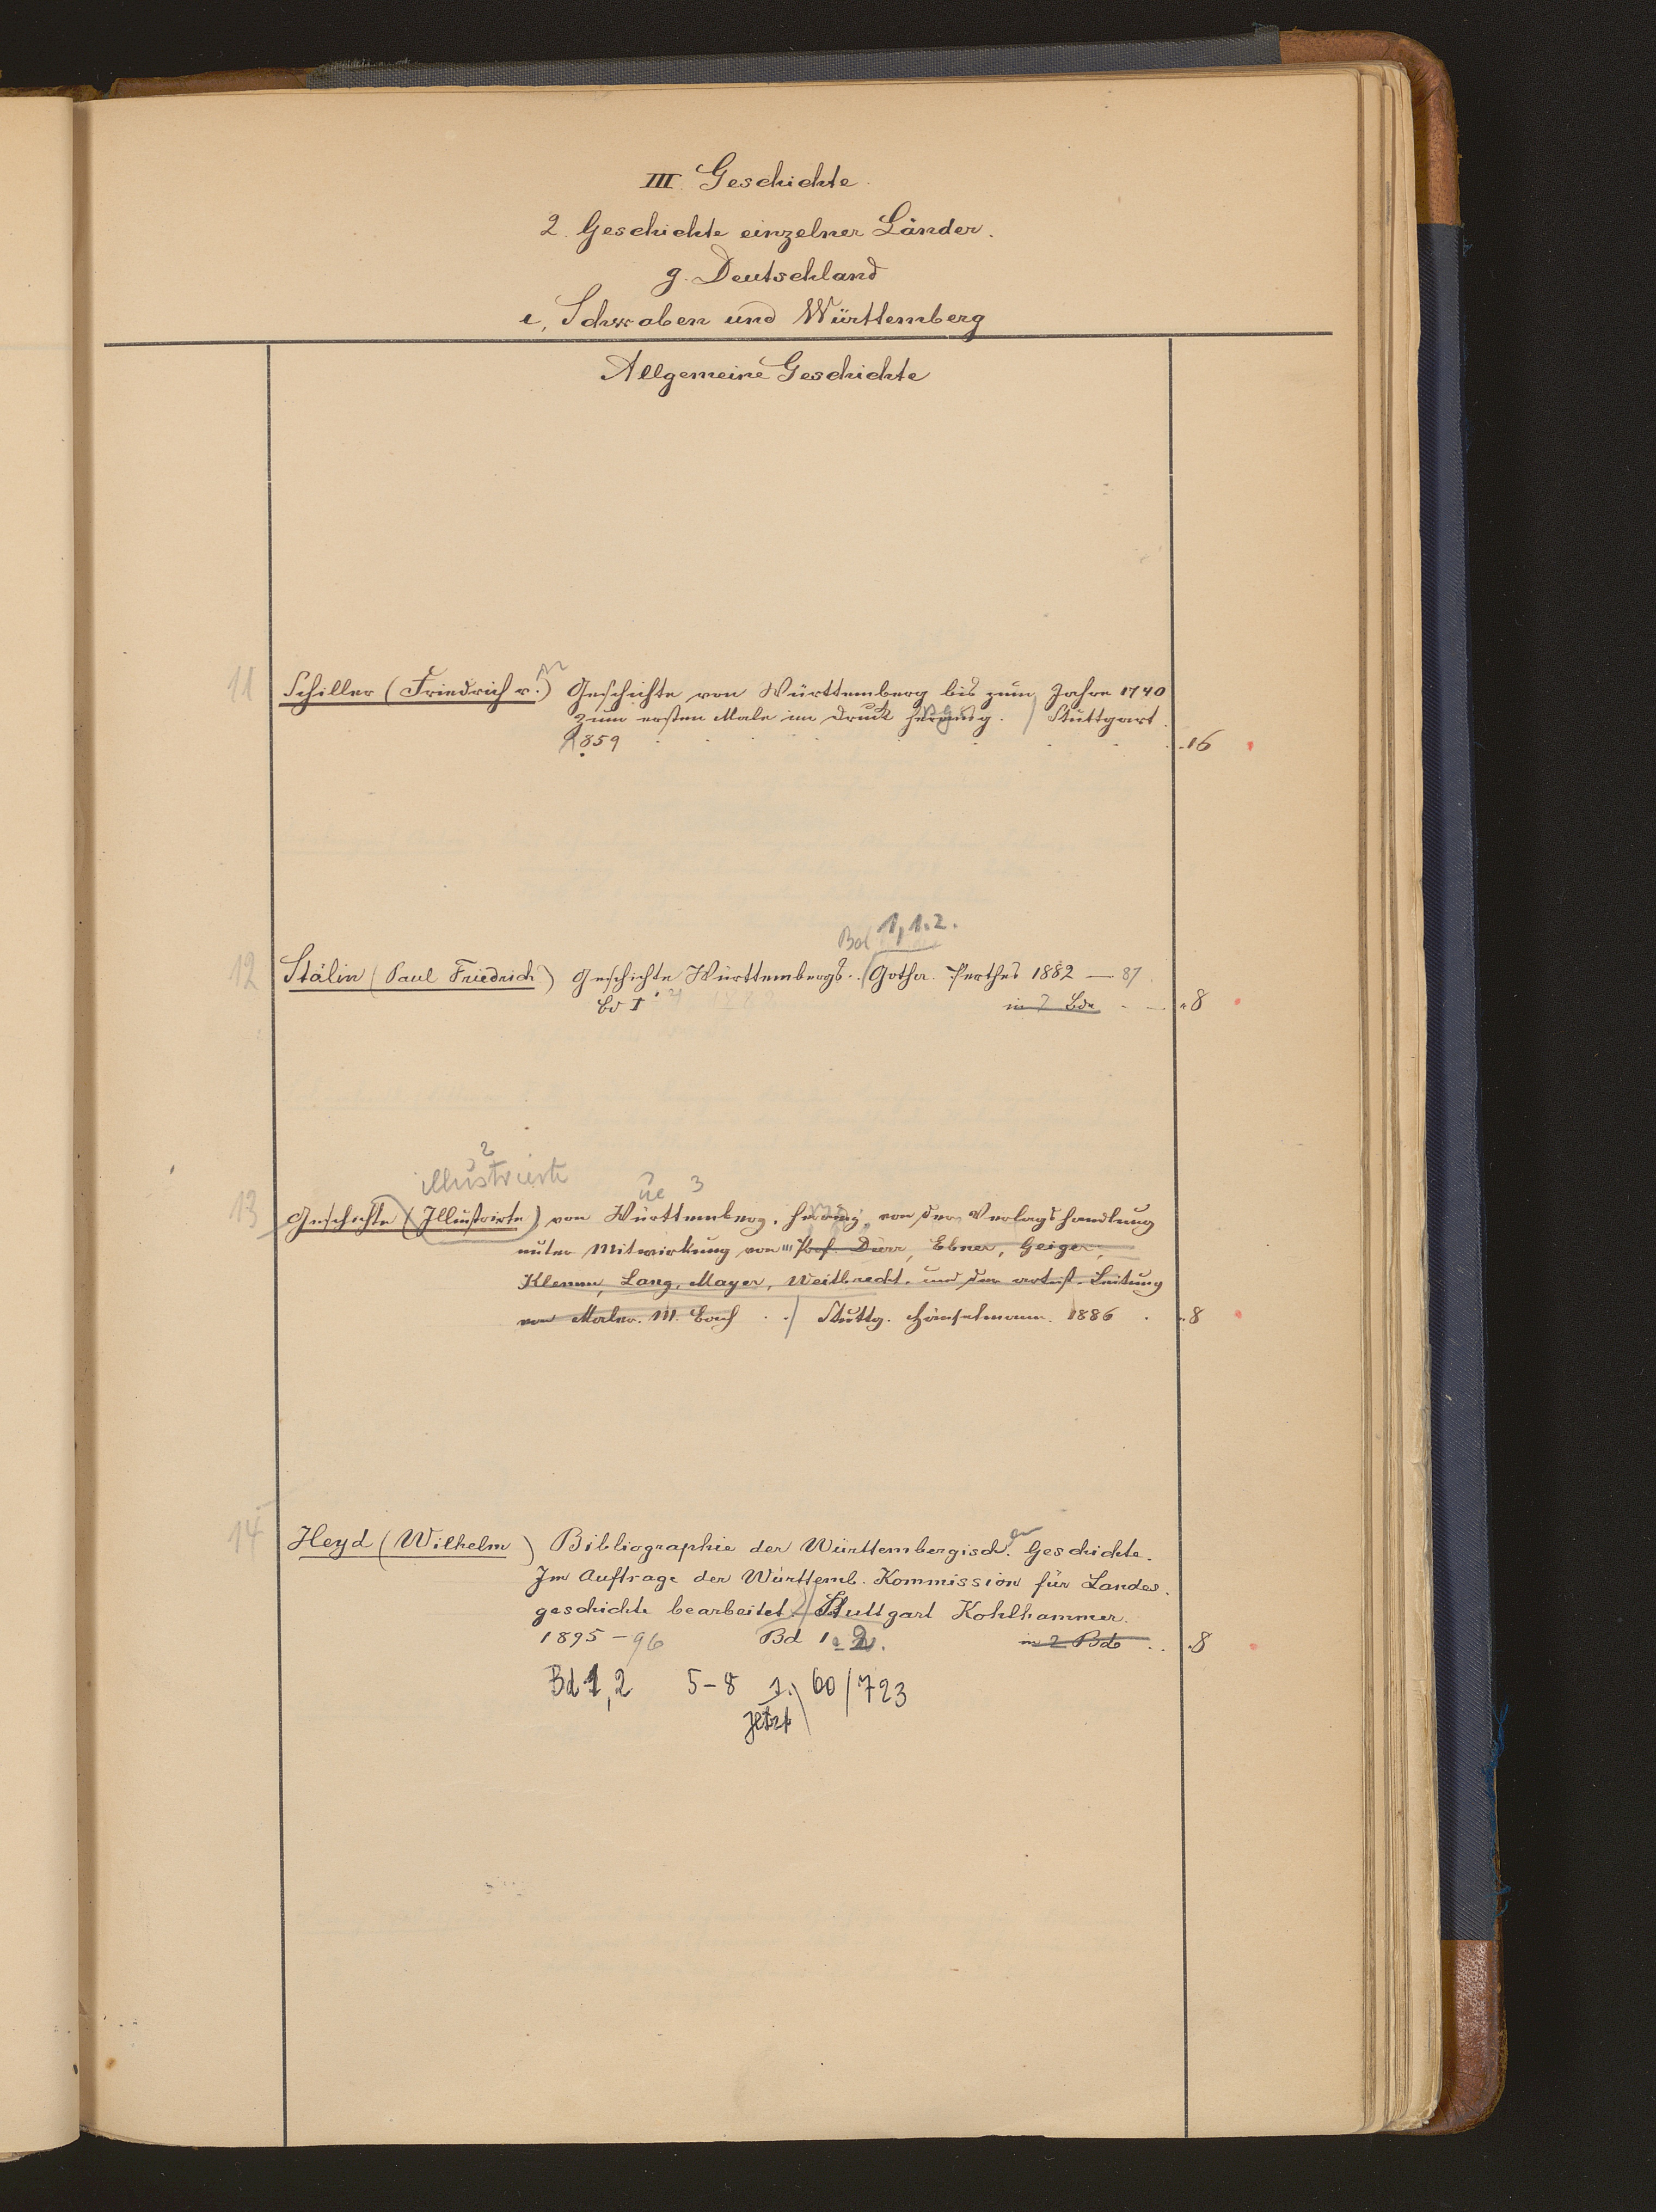 III. Geschichte.
2. Geschichte einzelner Länder.
g. Deutschland
e, Schwaben und Württemberg
Allgemeine Geschichte
11 Schiller (Friedrich v.) Geschichte von Württemberg bis zum Jahre 1740
zum ersten Male im Druck herausg. / Stuttgart
1859 16
Bd 1,1.2.
12 Stälin (Paul Friedrich) Geschichte Württembergs. / Gotha Perthes 1882 — 87
Bd I 1882 in 2 Bde 8
2
illustrierte
3
13 Geschichte (Illustrirte) von Württemberg. herausg. von der Verlagshandlung
unter Mitwirkung von Prof. Dürr, Ebner, Geiger,
Klemm, Lang, Mayer, Weitbrecht. und der artist. Leitung
von Maler. M. Bach / Stuttg. Hänselmann. 1886 8
14 Heyd (Wilhelm) Bibliographie der Württembergisch. en Geschichte.
Im Auftrage der Württemb. Kommission für Landes.
geschichte bearbeitet / Stuttgart Kohlhammer.
1895 – 96 Bd 1 2. in 2 Bde 8
Bd 1,2 5-8 60/723
jetzt